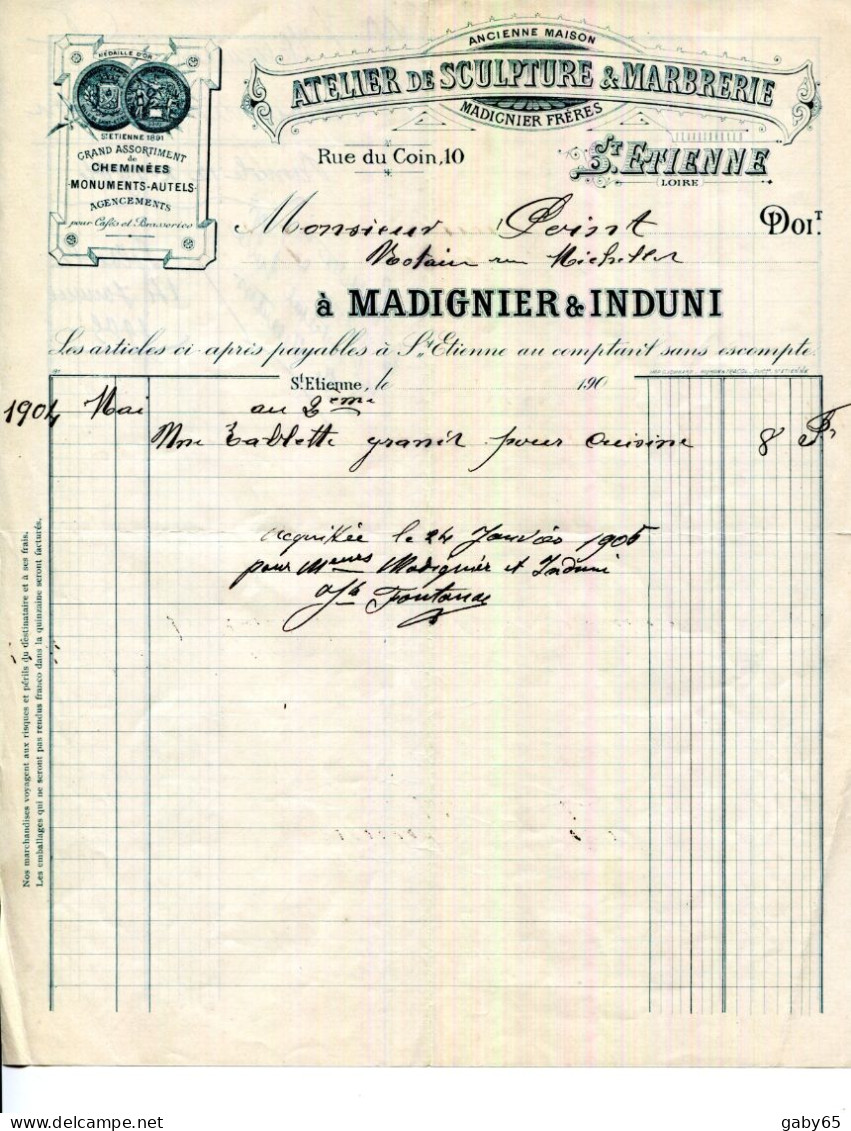 MÉDAILLE D'OR
ST ETIENNE 1891
GRAND ASSORTIMENT
de
CHEMINÉES
MONUMENTS-AUTELS
AGENCEMENTS
pour Cafés et Brasseries
ANCIENNE MAISON
ATELIER DE SCULPTURE & MARBRERIE
MADIGNIER FRÈRES
Rue du Coin, 10
ST. ETIENNE
(LOIRE)
Monsieur Point DOIT.
Notaire rue Michelet
à MADIGNIER & INDUNI
Les articles ci-après payables à St Etienne au comptant sans escompte.
St Etienne, le 190
1904 Mai au 2eme
Une tablette granit pour cuisine 8 F
acquittée le 24 Janvier 1905
pour Meurs Madignier et Induni
Fontanes
Nos marchandises voyagent aux risques et périls du destinataire et à ses frais.
Les emballages qui ne seront pas rendus franco dans la quinzaine seront facturés.
gaby65